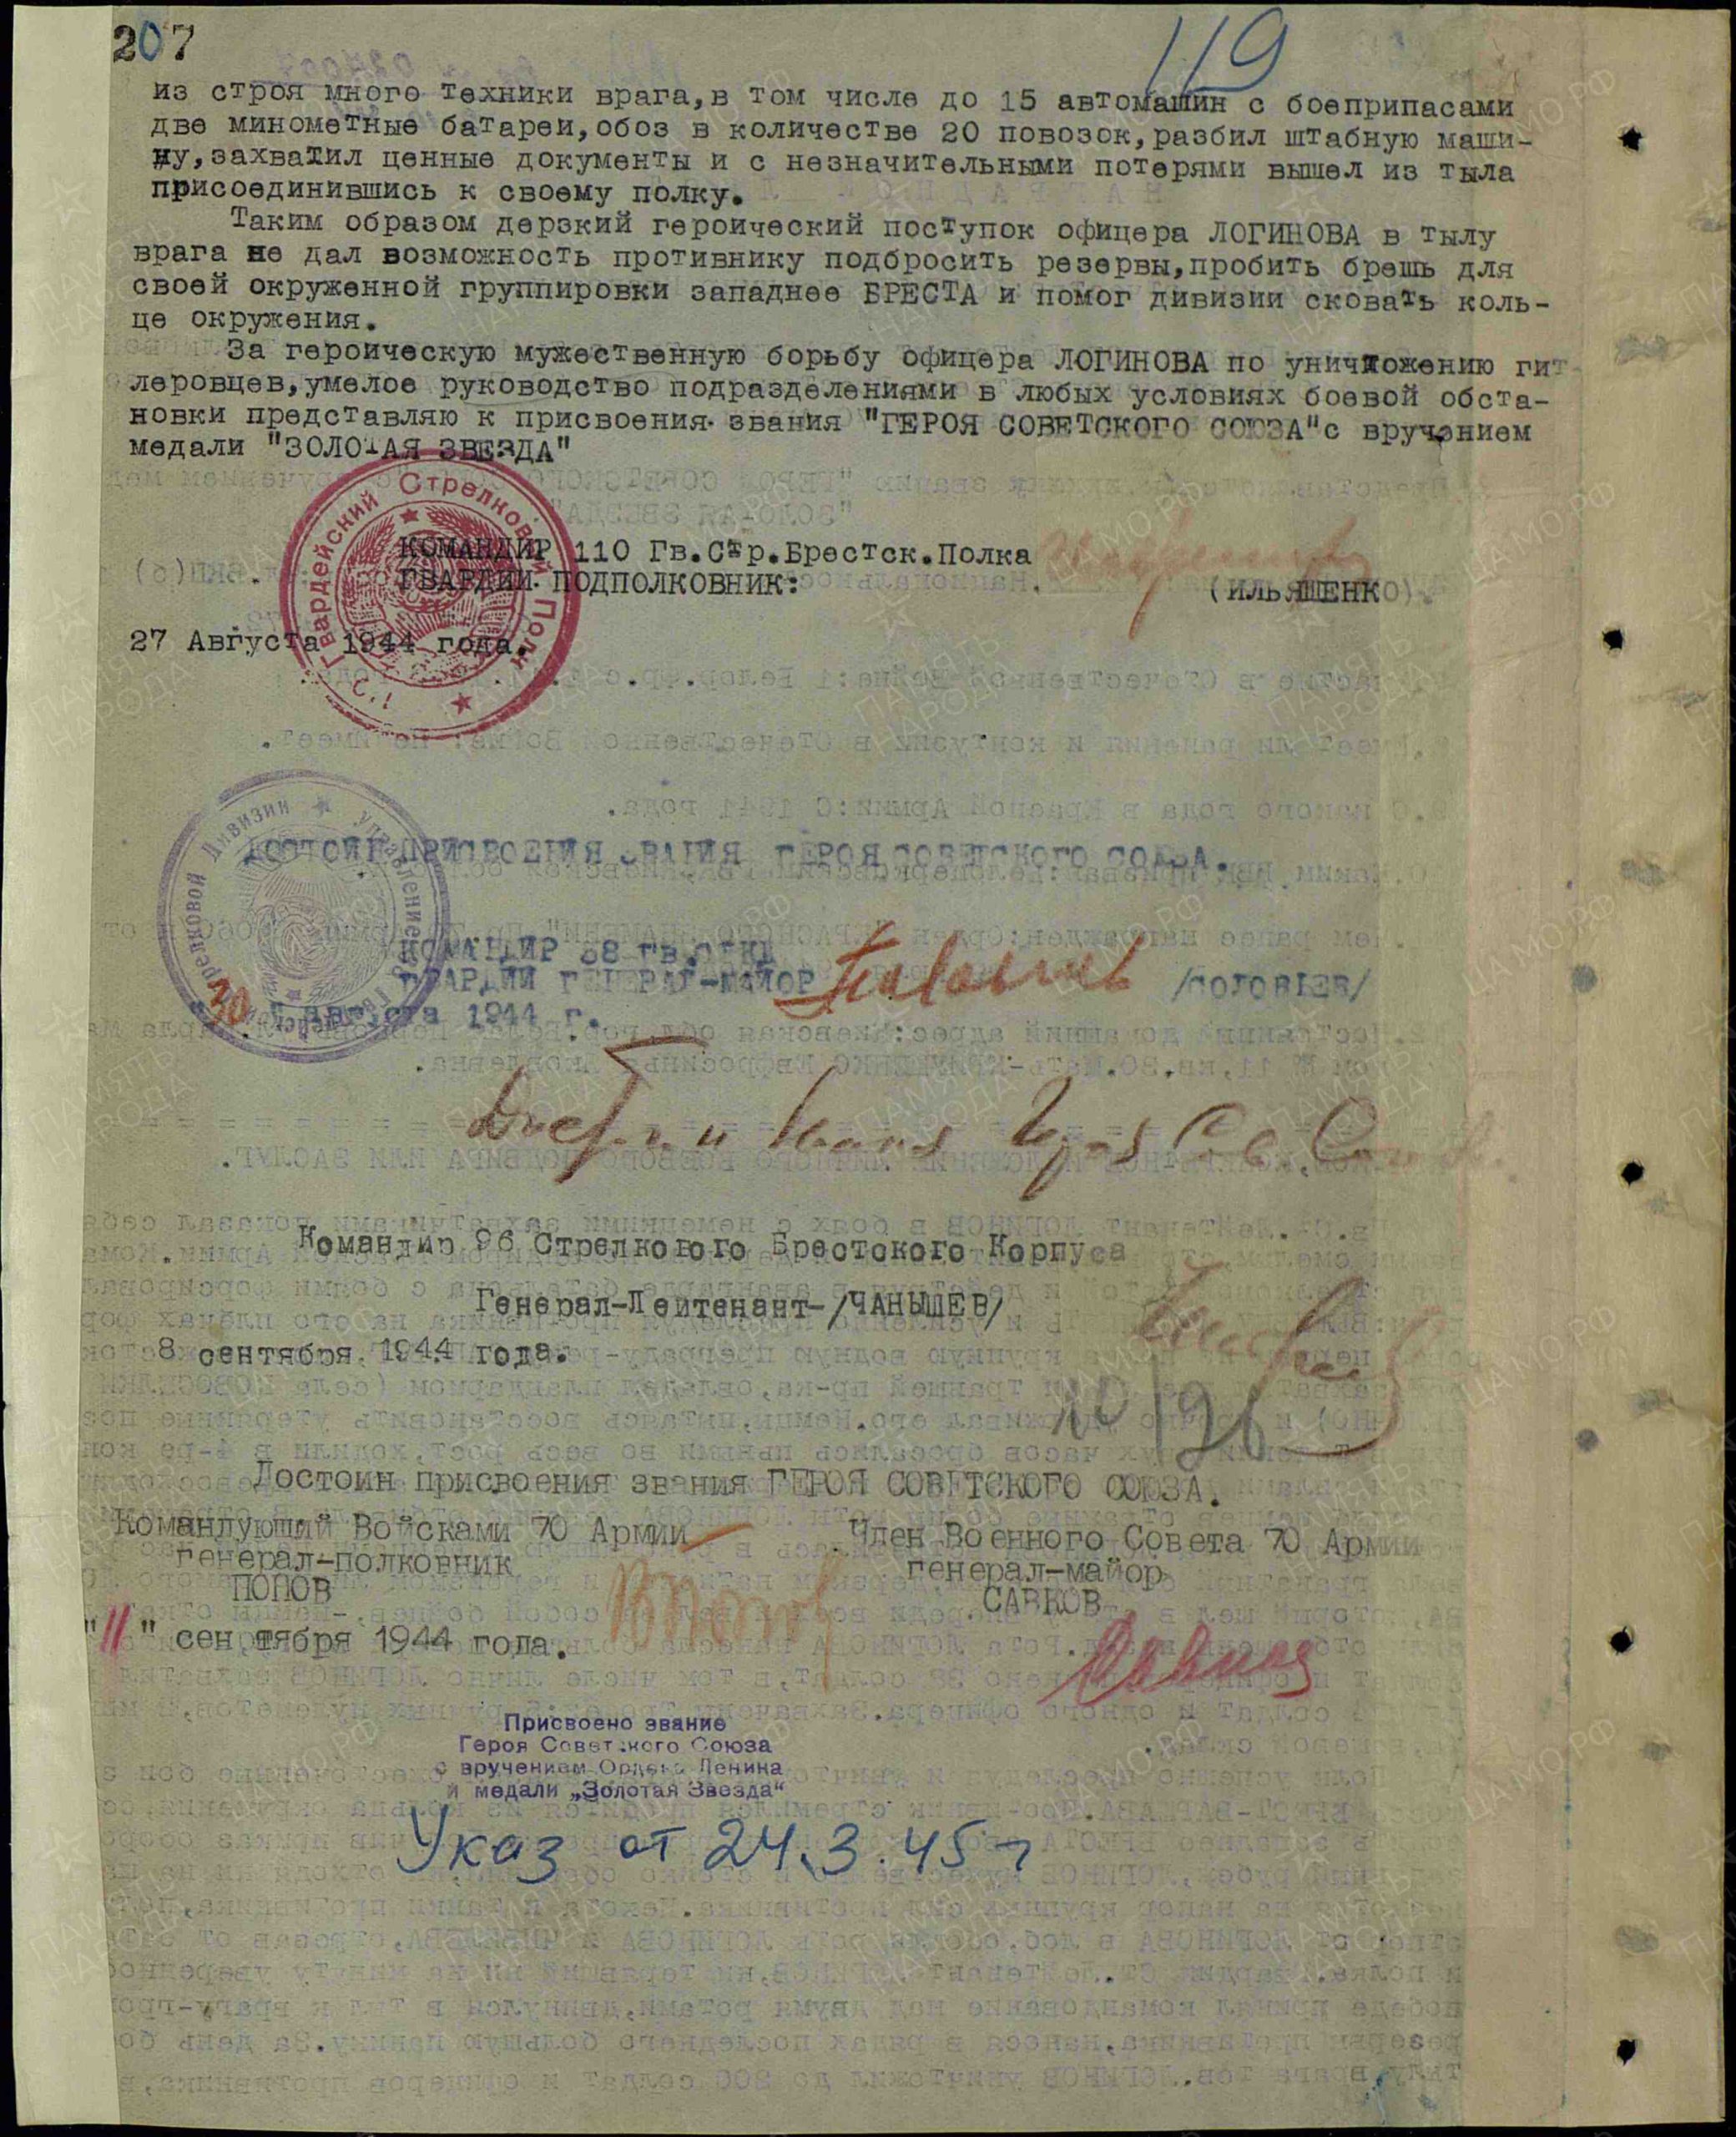 207
119
из строя много техники врага,в том числе до 15 автомашин с боеприпасами
две минометные батареи,обоз в количестве 20 повозок,разбил штабную маши-
ну,захватил ценные документы и с незначительными потерями вышел из тыла
присоединившись к своему полку.
Таким образом дерзкий героический поступок офицера ЛОГИНОВА в тылу
врага не дал возможность противнику подбросить резервы,пробить брешь для
своей окруженной группировки западнее БРЕСТА и помог дивизии сковать коль-
це окружения.
За героическую мужественную борьбу офицера ЛОГИНОВА по уничтожению гит-
леровцев,умелое руководство подразделениями в любых условиях боевой обста-
новки представляю к присвоения звания "ГЕРОЯ СОВЕТСКОГО СОЮЗА"с вручением
медали "ЗОЛОТАЯ ЗВЕЗДА"
Гвардейский Стрелковый Полк
КОМАНДИР 110 Гв.Стр.Брестск.Полка
ГВАРДИИ ПОДПОЛКОВНИК:
(ИЛЬЯШЕНКО).
27 Августа 1944 года.
ДОСТОИН ПРИСВОЕНИЯ ЗВАНИЯ ГЕРОЯ СОВЕТСКОГО СОЮЗА.
КОМАНДИР 38 ГВ.
ГВАРДИИ ГЕНЕРАЛ-МАЙОР
/СОЛОВЬЕВ/
30 августа 1944 г.
Командир 96 Стрелкового Брестского Корпуса
Генерал-Лейтенант-/ЧАНЫШЕВ/
8 сентября 1944 года.
Достоин присвоения звания ГЕРОЯ СОВЕТСКОГО СОЮЗА.
Командующий Войсками 70 Армии
генерал-полковник
ПОПОВ
"11" сентября 1944 года.
Член Военного Совета 70 Армии
генерал-майор
САВКОВ
Присвоено звание
Героя Советского Союза
с вручением Ордена Ленина
и медали „Золотая Звезда"
Указ от 24.3.45 г